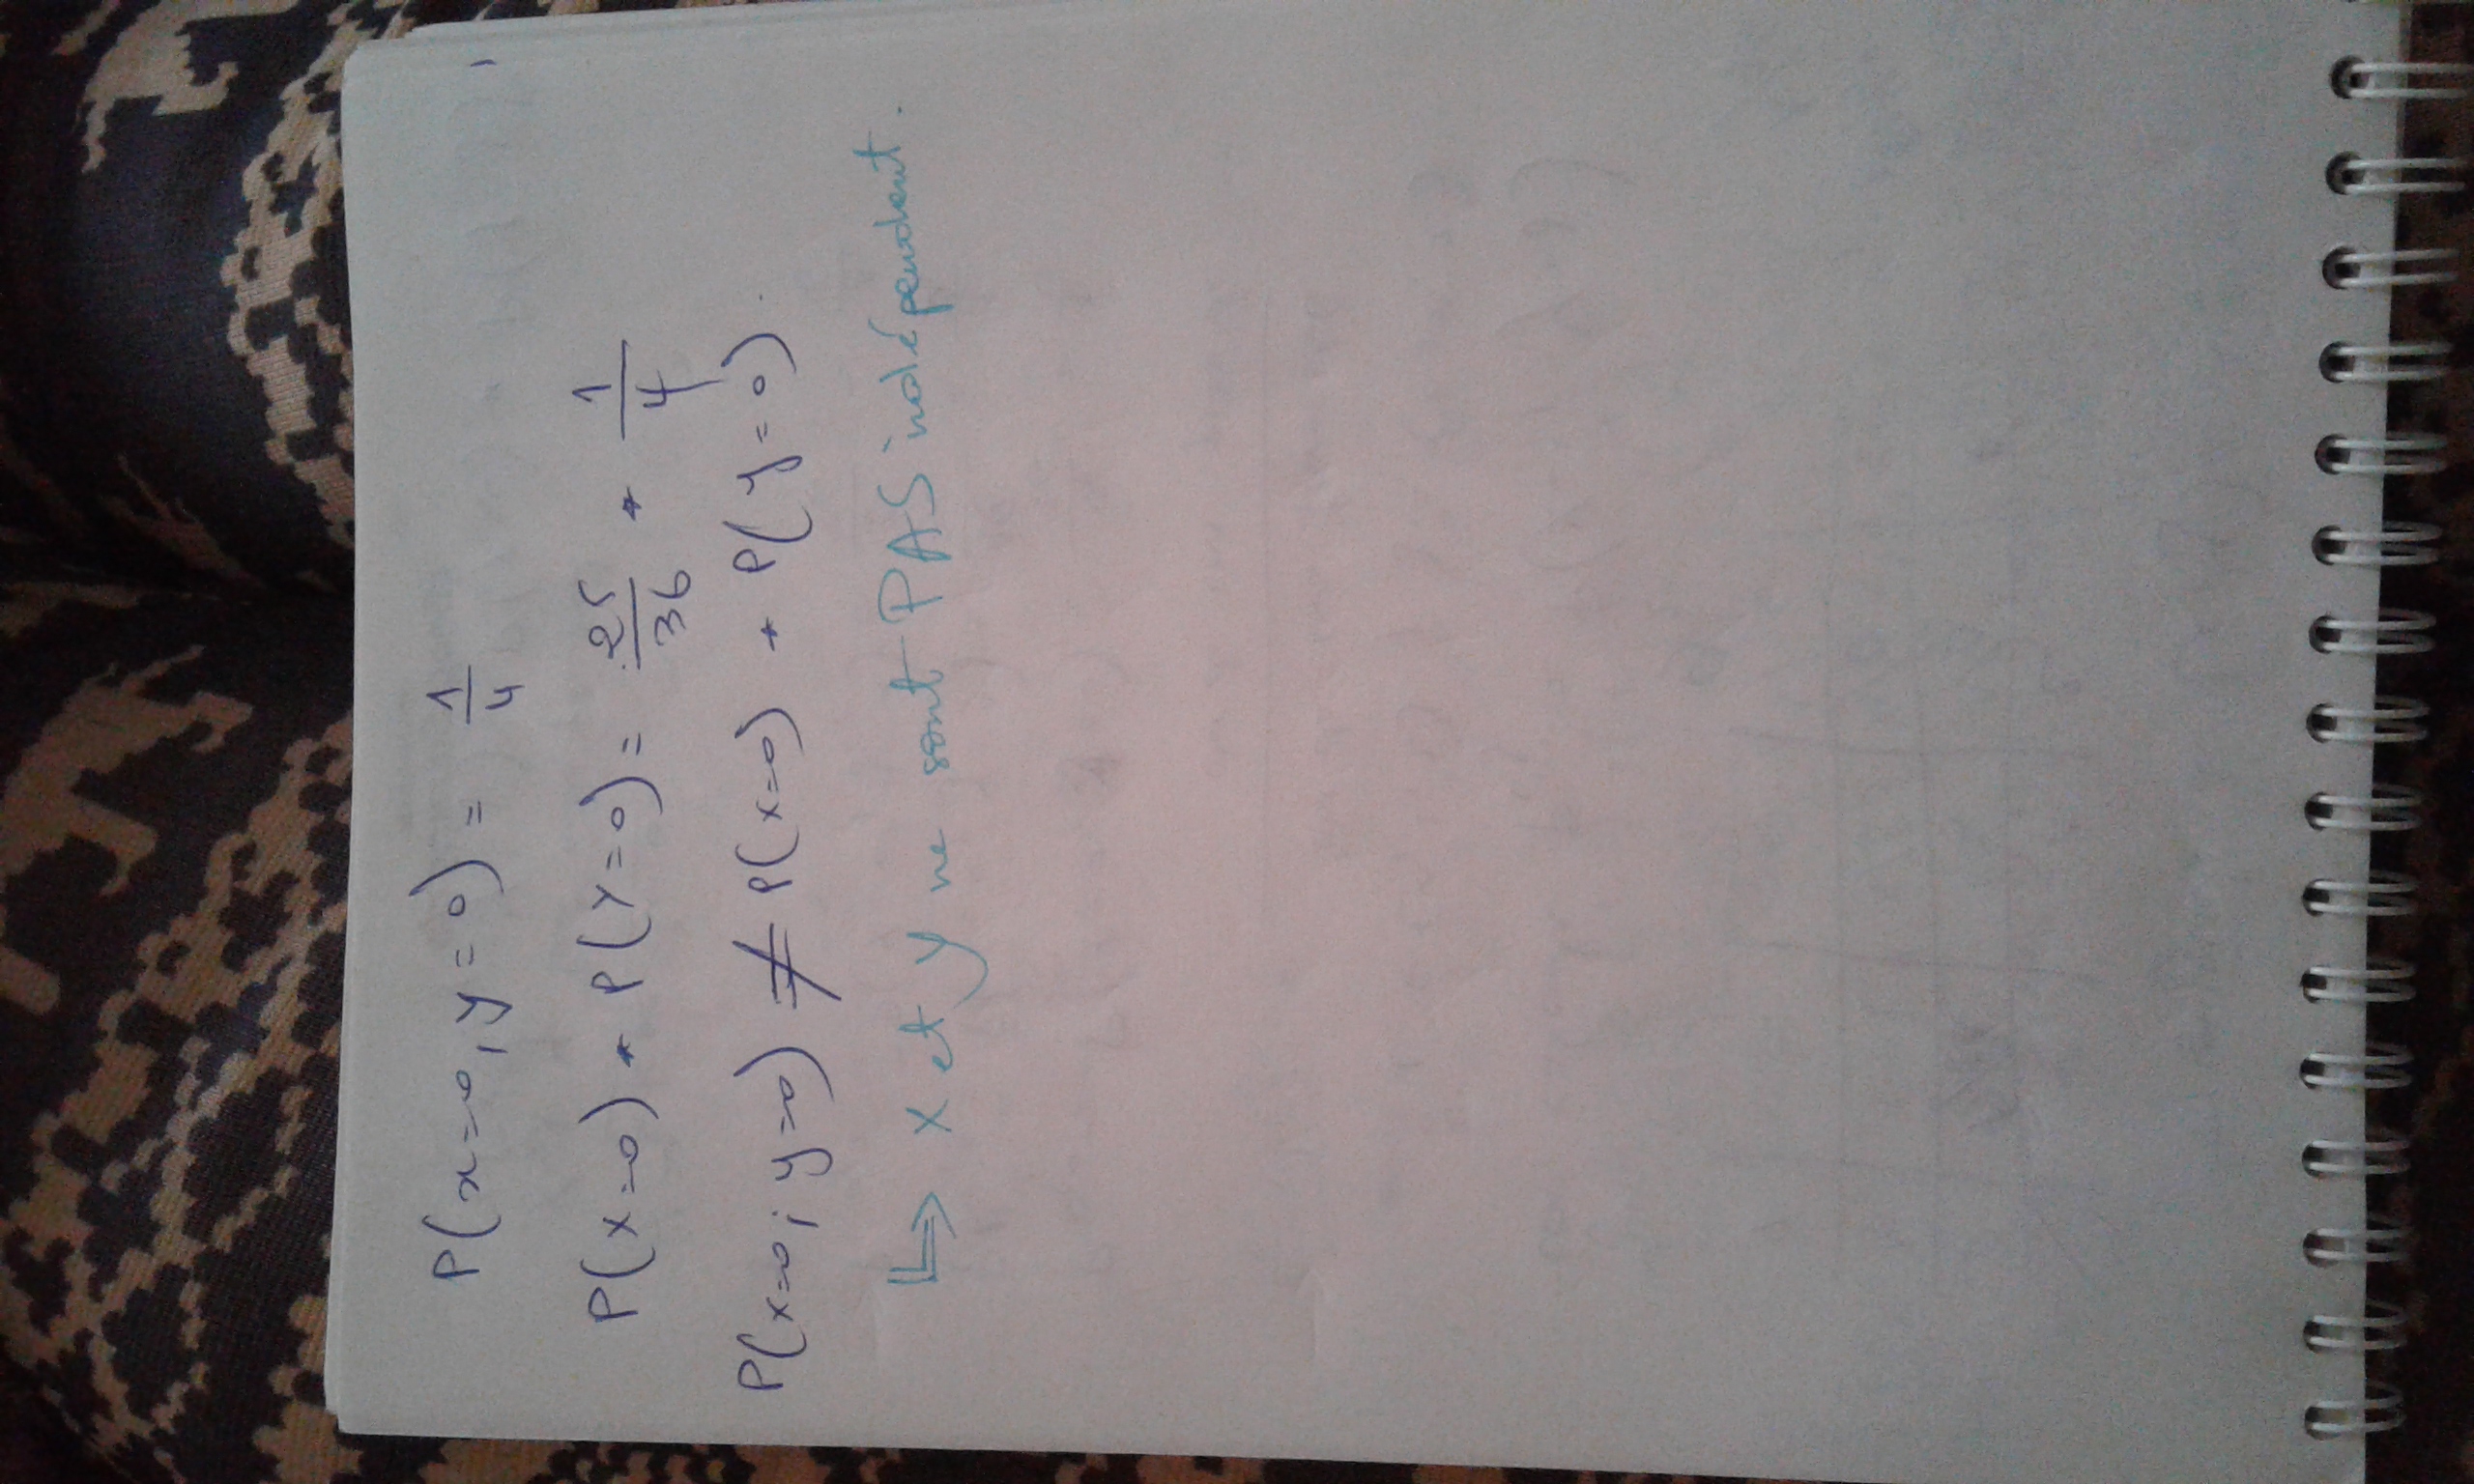 P(x=0, y=0) = 1/4
P(X=0) * P(Y=0) = 25/36 * 1/4
P(x=0; y=0) ≠ P(x=0) * P(y=0).
⇒ X et Y ne sont PAS indépendant.